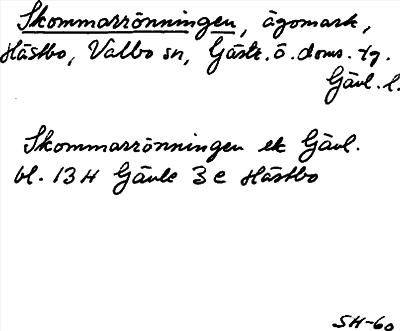 Skommarrönningen, ägomark,
Hästbo, Valbo sn, Gästr. ö. doms. tg.
Gävl. l.
Skommarrönningen ek Gävl.
bl. 13 H Gävle 3 e Hästbo
SH-60